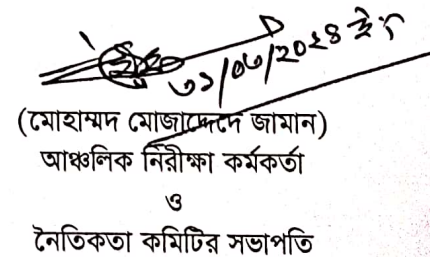 ৩১/০৩/২০২৪ ইং
(মোহাম্মদ মোজাদ্দেদে জামান)
আঞ্চলিক নিরীক্ষা কর্মকর্তা
ও
নৈতিকতা কমিটির সভাপতি